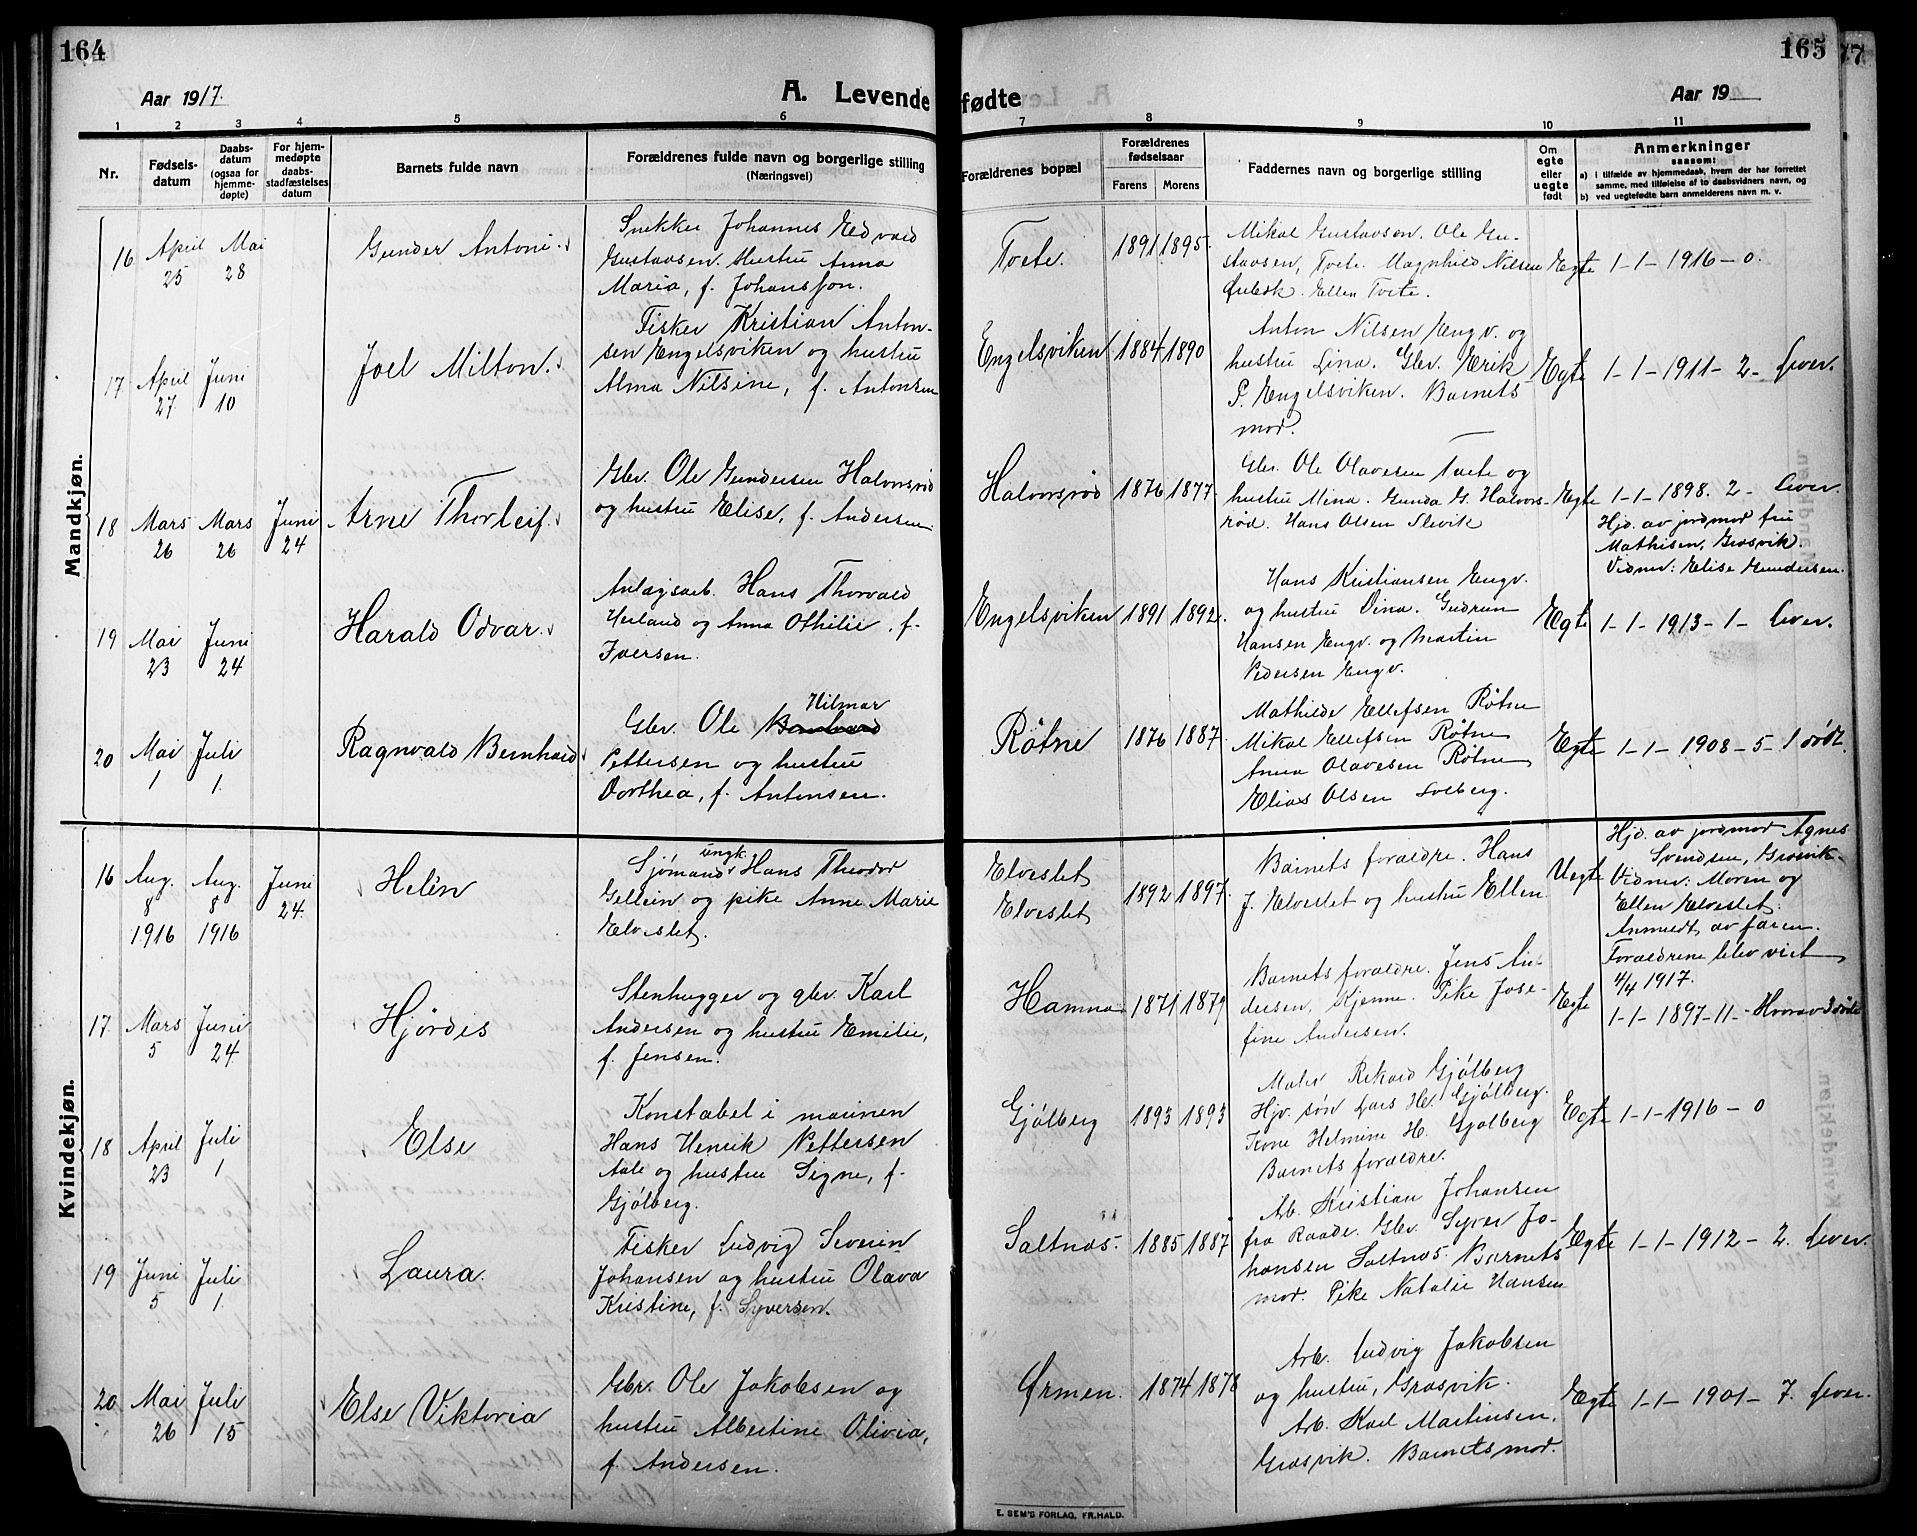 164
165
77
Aar 1917.
A. Levende fødte
Aar 19
1 2 3 4 5 6 7 8 9 10 11
Nr.
Fødselsdatum
Daabsdatum (ogsaa for hjemmedøpte)
For hjemmedøpte daabsstadfæstelses datum
Barnets fulde navn
Forældrenes fulde navn og borgerlige stilling
(Næringsvei)
Forældrenes bopæl
Forældrenes fødselsaar
Farens Morens
Faddernes navn og borgerlige stilling
Om egte eller uegte født
Anmerkninger
saasom:
a) i tilfælde av hjemmedaab, hvem der har forrettet
samme, med tilføielse af to daabsvidners navn, og
b) ved uegtefødte barn anmelderens navn m. v.
Mandkjøn.
16 April 25 Mai 28 Gunder Antoni
Snekker Johannes Edvard
Gustavsen. Hustru Anna
Maria, f. Johansson.
Tvete. 1891 1895.
Mikal Gustavsen. Ole Gu-
stavsen, Tvete. Magnhild Nilsen
Ellen Tvete.
Egte 1-1-1916-0.
17 April 27 Juni 10 Joel Milton.
Fisker Kristian Anton-
sen Engelsviken og hustru
Alma Nilsine, f. Antonsen
Engelsviken 1884 1890
Anton Nilsen Engv. og
hustru Lina. Gbr. Erik
P. Engelsviken. Barnets
mor.
Egte 1-1-1911-2- lever.
18 Mars 26 Mars 26 Juni 24 Arne Thorleif.
Gbr. Ole Gundersen Halvorsrød
og hustru Elise, f. Andersen.
Halvorsrød 1876 1877.
Gbr. Ole Olavesen Tvete og
hustru Mina. Gunda G. Halvors-
rød. Hans Olsen Slevik
Egte 1-1-1898. 2- lever.
Hjd. av jordmor fru
Mathisen, Græsvik.
Vidner: Elise Gundersen.
19 Mai 23 Juni 24 Harald Odvar.
Anlægsarb. Hans Thorvald
Herland og Anna Othilie, f.
Iversen.
Engelsviken 1891 1892.
Hans Kristiansen Engv.
og hustru Dina. Gudrun
Hansen Engv. og Martin
Pedersen Engv.
Egte 1-1-1913-1- lever.
20 Mai 1 Juli 1. Ragnvald Bernhard
Hilmar
Gbr. Ole
Pettersen og hustru
Dorthea, f. Antonsen.
Røtne 1876 1887.
Mathilde Ellefsen Røtne
Mikal Ellefsen Røtne
Anna Olavesen Røtne
Elias Olsen Solberg.
Egte 1-1-1908-5-1 død.
Kvindekjøn.
16 Aug. 8 1916 Aug. 8 1916 Juni 24. Helén
ungk.
Sjømand Hans Theodor
Gellein og pike Anne Marie
Elveslet.
Elveslet
Elveslet
1892 1897.
Barnets forældre. Hans
J. Elveslet og hustru Ellen.
Uegte
Hjd. av jordmor Agnes
Svendsen, Græsvik.
Vidner: Moren og
Ellen Elveslet.
Anmeldt av faren.
Forældrene blev viet
4/4 1917.
17 Mars 5 Juni 24. Hjördis
Stenhugger og gbr. Karl
Andersen og hustru Emilie,
f. Jensen.
Hamna 1871 1879
Barnets forældre. Jens An-
dersen, Kjenne. Pike Jose-
fine Andersen.
Egte 1-1-1897-11-Hvorav 3 døde
18 April 23 Juli 1 Else
Konstabel i marinen
Hans Henrik Pettersen
Aale og hustru Signe, f.
Gjølberg.
Gjølberg 1893 1893
Maler Rikard Gjølberg
Hjv. søn Lars H. Gjølberg.
Helmine H. Gjølberg
Barnets forældre.
Egte 1-1-1916-0
19 Juni 5 Juli 1. Laura.
Fisker Ludvig Severin
Johansen og hustru Olava
Kristine, f. Syversen.
Saltnes. 1885 1887
Ab. Kristian Johansen
fra Raade. Gbr. Syver Jo-
hansen Saltnes. Barnets
mor. Pike Natalie Hansen
Egte 1-1-1912-2. lever.
20 Mai 26 Juli 15 Else Viktoria
Gbr. Ole Jakobsen og
hustru Albertine Olivia,
f. Andersen.
Ørmen. 1874 1878
Arb. Ludvig Jakobsen
og hustru, Græsvik.
Arb. Karl Martinsen,
Græsvik. Barnets mor.
Egte 1-1-1901-7. lever.
E. SEM'S FORLAG, FR.HALD.